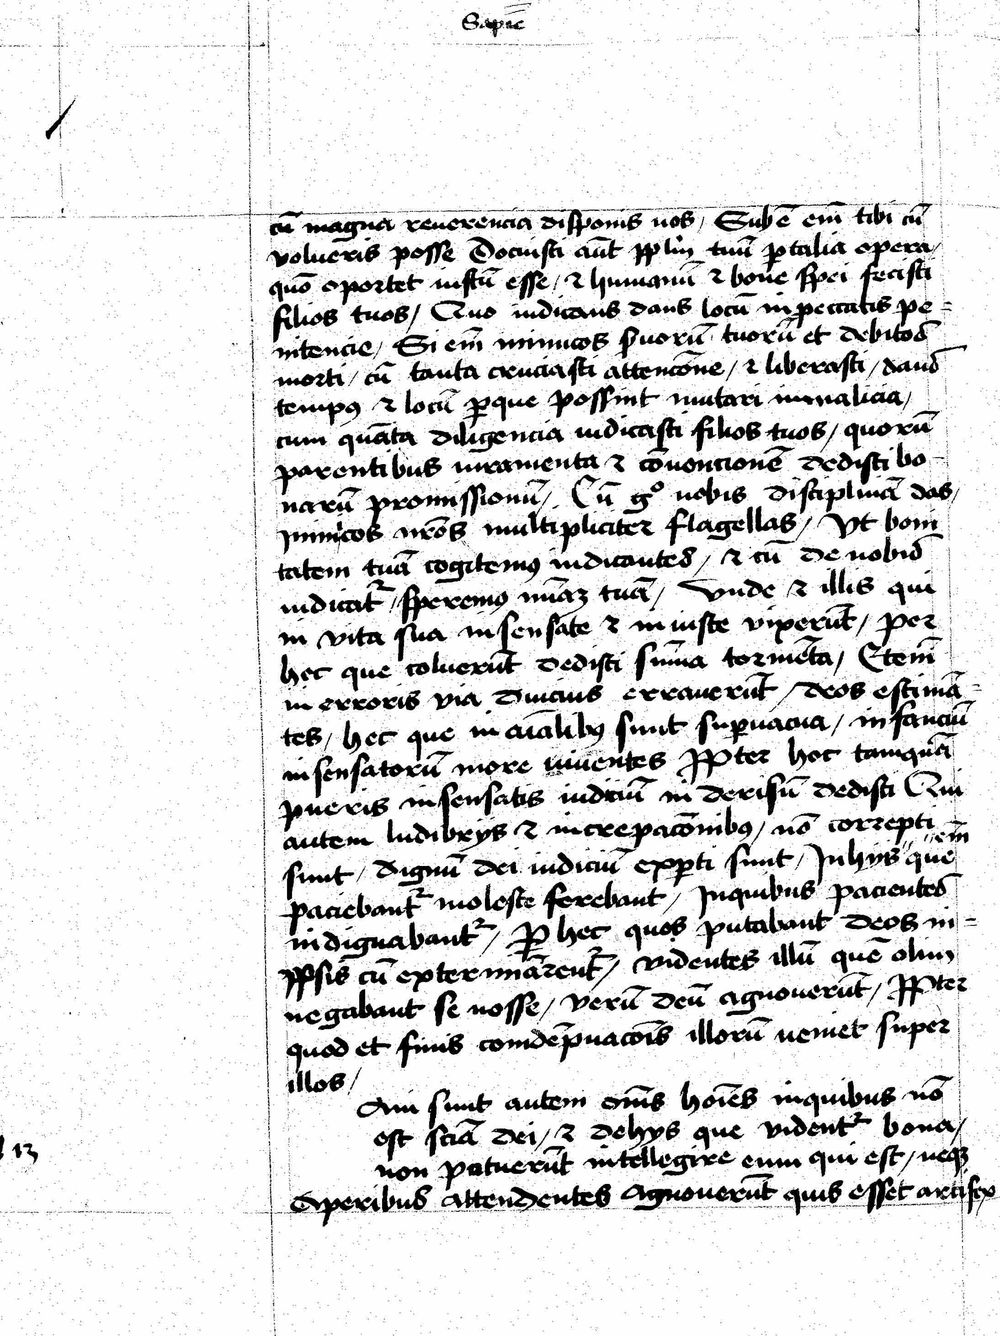 Sapiē
cū magna reuerencia disponis nos / Subē em̄ tibi cū
volueris posse Docuisti aūt pplm̄ tuū p talia opera /
quō oportet iustū esse / ⁊ humanū ⁊ bone spei fecisti
filios tuos / Quo iudicans dans locū in peccatis pe=
nitencie / Si em̄ inimicos suorū tuorū et debitos
morti / cū tanta cruciasti attencōne / ⁊ liberasti / dans
tempus ⁊ locū p que possint mutari inmalicia /
cum quāta diligencia iudicasti filios tuos / quorū
parentibus iuramenta ⁊ cōuencionē dedisti bo
narū promissionū / Cū gº nobis disciplinā das /
inimicos nr̄os multipliciter flagellas / Vt boni
tatem tuā cogitemus iudicantes / ⁊ cū de nobis
iudicatr̄ / speremus mīaz tuā / Vnde ⁊ illis qui
in vita sua insensate ⁊ iniuste vixerūt / per
hec que coluerūt dedisti sūma tormēta / Etem̄
in erroris via diucius errauerūt / deos estimā=
tes / hec que in aīalibus sunt supuacua / infanciū
insensatorū more uiuentes Ppter hoc tamquā
pueris insensatis iudiciū in derisū dedisti Qui
autem ludibrys ⁊ increpacōnibus / nō correpti
sunt / dignū dei iudiciū expti sunt / Inhys em̄ que
paciebantr̄ moleste ferebant / Inquibus pacientes
indignabantr̄ / P hec quos putabant deos in=
ipsis cū exterminarentr̄ / videntes illū quē olim
negabant se nosse / verū deū agnouerūt / Ppter
quod et finis comdēpnacōis illorū ueniet super
illos /
Qui sunt autem om̄s hoīes inquibus nō
est sciā dei / ⁊ dehys que videntr̄ bona /
13
non potuerūt intellegire eum qui est / neqz
Operibus attendentes agnouerūt quis esset artifex